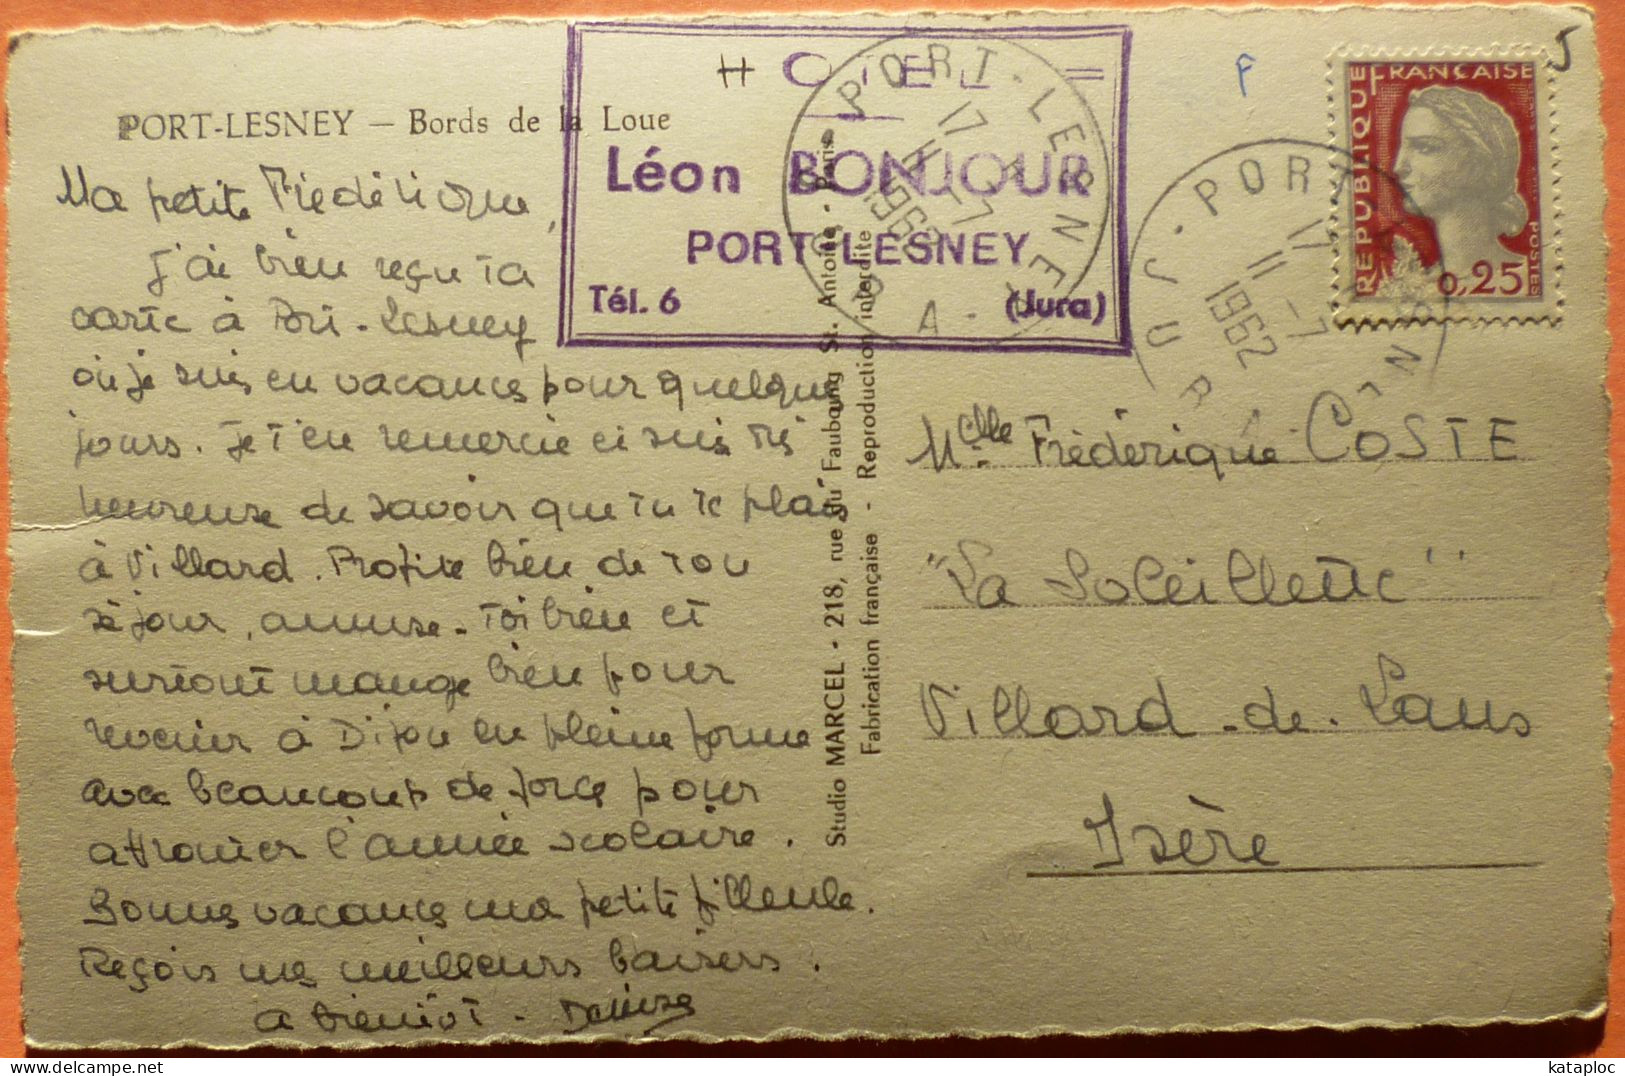 PORT-LESNEY — Bords de la Loue
HOTEL
Léon BONJOUR
PORT-LESNEY
Tél. 6 (Jura)
F
5
RÉPUBLIQUE FRANÇAISE
0,25
POSTES
PORT-LESNEY
17 H
11-7
1962
JURA
PORT-LESNEY
17 H
11-7
1962
JURA
Ma petite Frédérique,
J'ai bien reçu ta
carte à Port-Lesney
où je suis en vacances pour quelques
jours. Je t'en remercie et suis très
heureuse de savoir que tu te plais
à Villard. Profite bien de ton
séjour, amuse-toi bien et
surtout mange bien pour
revenir à Dijon en pleine forme
avec beaucoup de force pour
affronter l'année scolaire.
Bonnes vacances ma petite filleule.
Reçois mes meilleurs baisers.
A bientôt - Denise
Studio MARCEL - 218, rue du Faubourg St. Antoine - Paris
Fabrication française - Reproduction interdite
Melle Frédérique COSTE
"La Soleillette"
Villard-de-Lans
Isère
kataploc